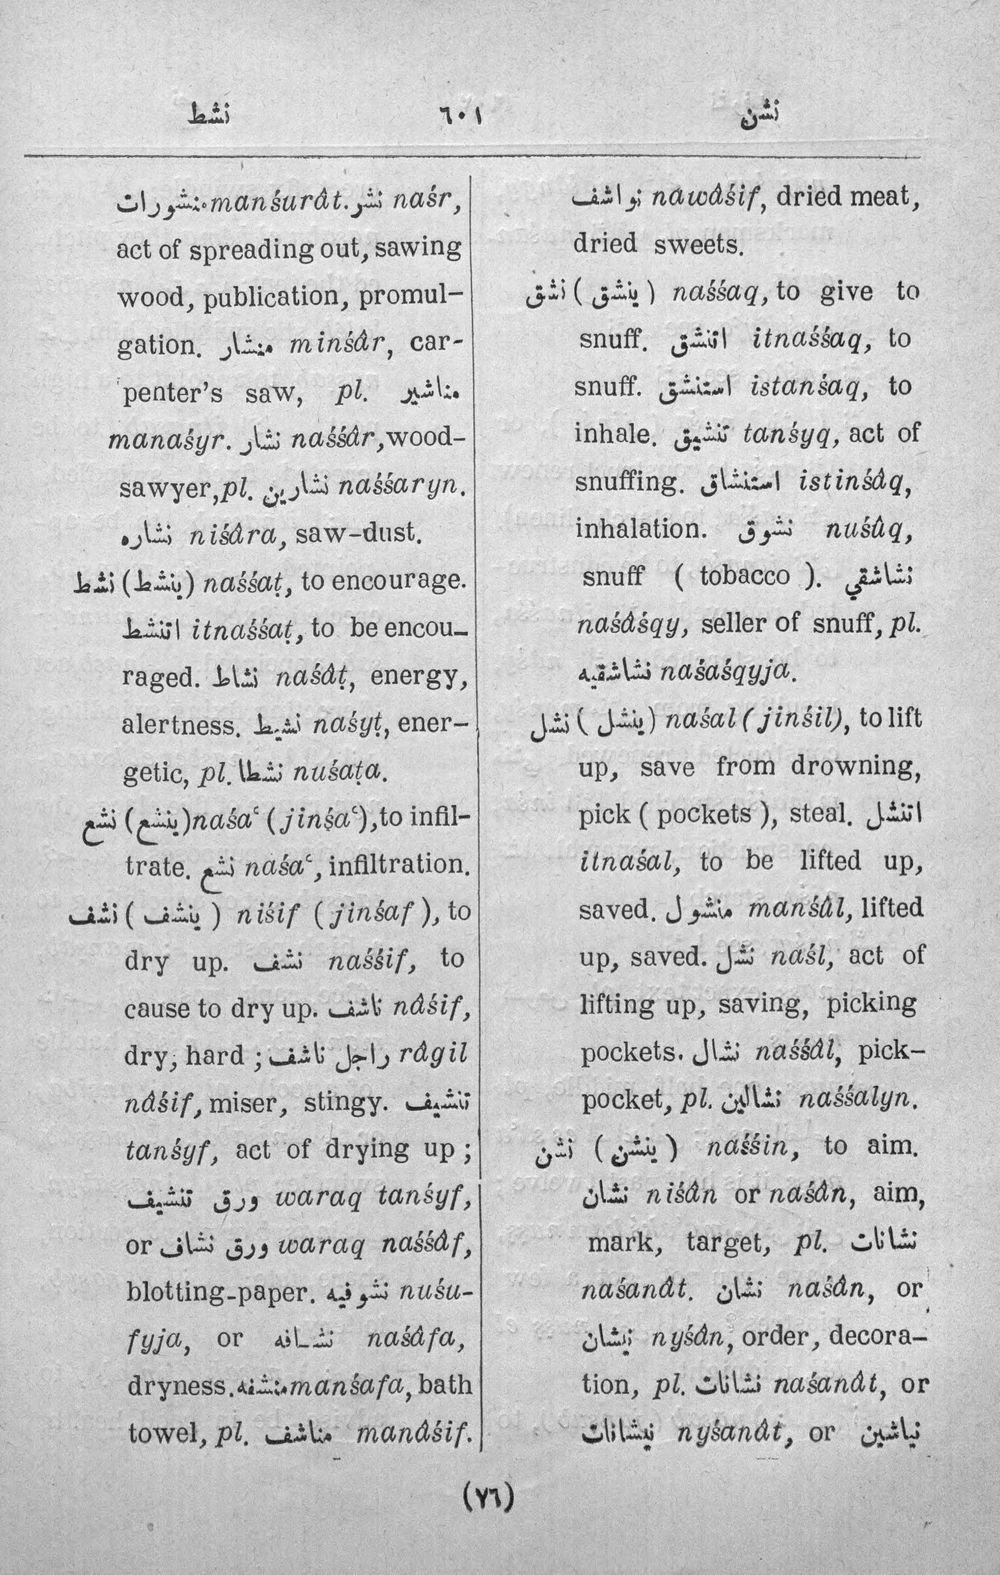 نشط ٦٠١ نشن
منشورات manśurât. نشر naśr,
act of spreading out, sawing
wood, publication, promul-
gation. منشار minśâr, car-
penter's saw, pl. مناشير
manaśyr. نشار naśśâr, wood-
sawyer, pl. نشارين naśśaryn.
نشاره niśâra, saw-dust.
نشط (ينشط) naśśaṭ, to encourage.
اتنشط itnaśśaṭ, to be encou-
raged. نشاط naśâṭ, energy,
alertness. نشيط naśyṭ, ener-
getic, pl. نشطا nuśaṭa.
نشع (ينشع) naśaʿ (jinśaʿ), to infil-
trate. نشع naśaʿ, infiltration.
نشف (ينشف) niśif (jinśaf), to
dry up. نشف naśśif, to
cause to dry up. ناشف nâśif,
dry, hard ; راجل ناشف râgil
nâśif, miser, stingy. تنشيف
tanśyf, act of drying up ;
ورق تنشيف waraq tanśyf,
or ورق نشاف waraq naśśâf,
blotting-paper. نشوفيه nuśu-
fyja, or نشافه naśâfa,
dryness. منشفه manśafa, bath
towel, pl. مناشف manâśif.
نواشف nawâśif, dried meat,
dried sweets.
نشق (ينشق) naśśaq, to give to
snuff. اتنشق itnaśśaq, to
snuff. استنشق istanśaq, to
inhale. تنشيق tanśyq, act of
snuffing. استنشاق istinśâq,
inhalation. نشوق nuśûq,
snuff ( tobacco ). نشاشقي
naśâśqy, seller of snuff, pl.
نشاشقيه naśaśqyja.
نشل (ينشل) naśal (jinśil), to lift
up, save from drowning,
pick ( pockets ), steal. اتنشل
itnaśal, to be lifted up,
saved. منشول manśûl, lifted
up, saved. نشل naśl, act of
lifting up, saving, picking
pockets. نشال naśśâl, pick-
pocket, pl. نشالين naśśalyn.
نشن (ينشن) naśśin, to aim.
نشان niśân or naśân, aim,
mark, target, pl. نشانات
naśanât. نشان naśân, or
نيشان nyśân, order, decora-
tion, pl. نشانات naśanât, or
نيشانات nyśanât, or نياشين
(٧٦)